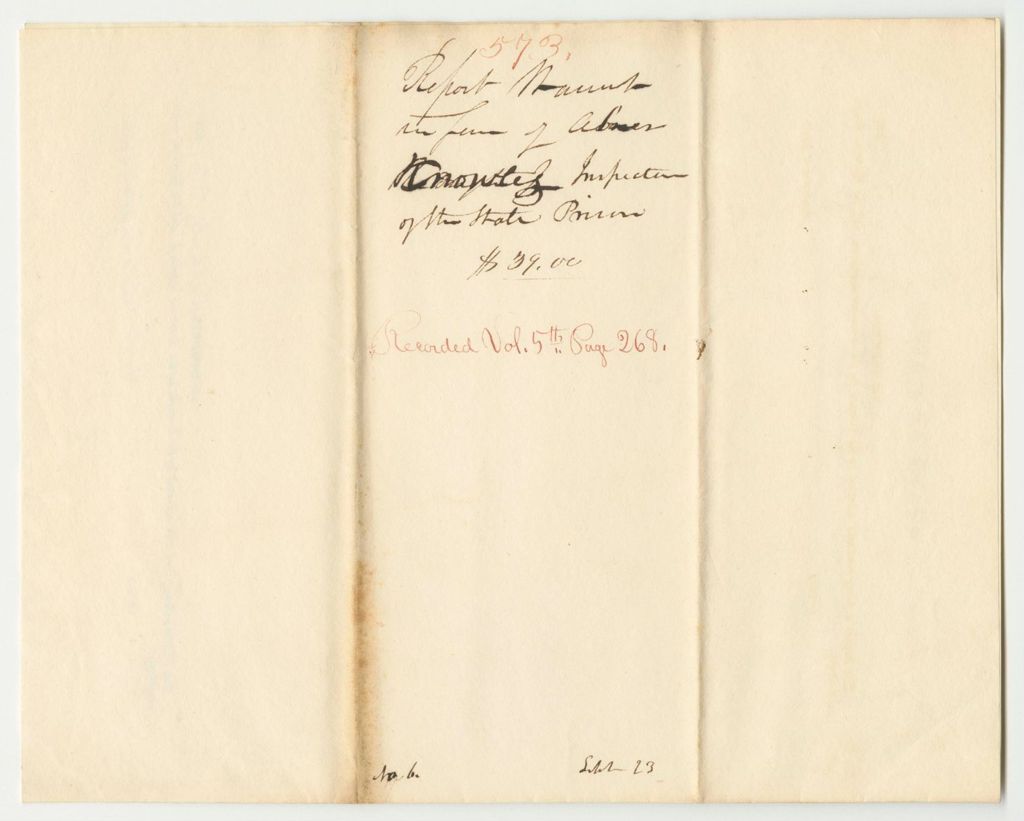 573.
Report Warrant
in favor of Abner
Knowles Inspector
of the State Prison
$39.00
Recorded Vol. 5th Page 268.
No 6.
Sept. 23